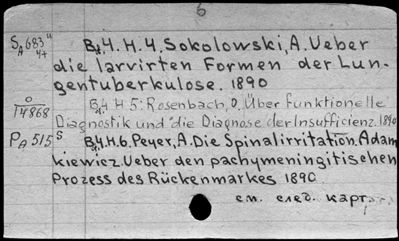 6
S_A 683 u/4+ B, 4. H. 4, Sokolowski, A. Ueber
die larvirten Formen der Lun-
gentuberkulose. 1890
O/14868 B, 4 H 5: Rosenbach, O. Über Funktionelle
Diagnostik und die Diagnose der Insufficienz. 1890
P_A 515 s B, 4. H. 6. Peyer, A. Die Spinalirritation. Adam
kiewicz. Ueber den pachymeningitischen
Prozess des Rückenmarkes 1890
см. след. карт.